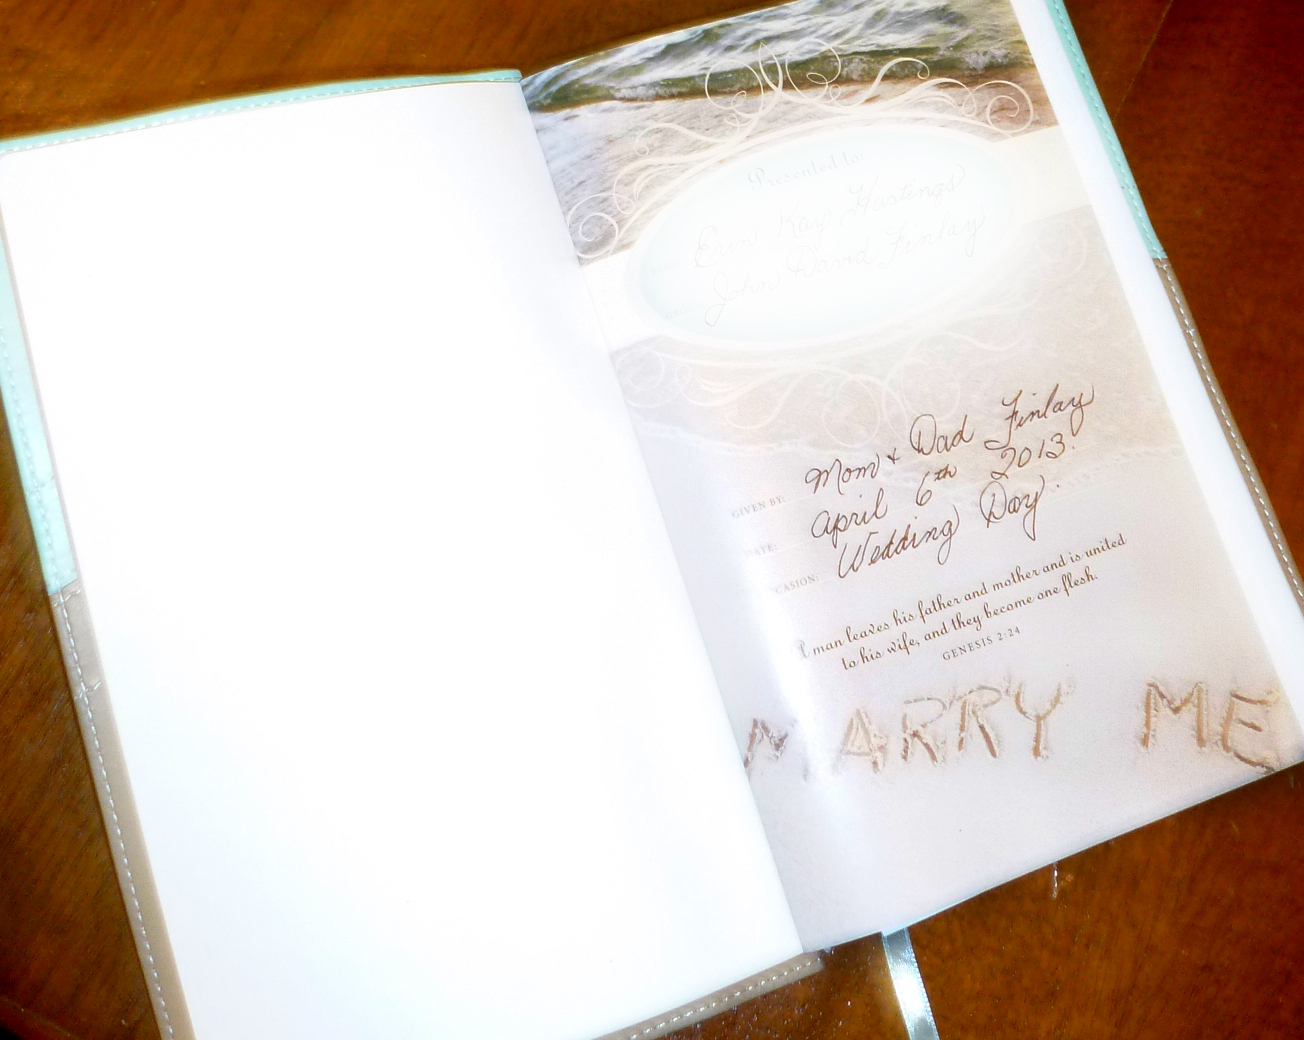 Presented to:
Erin Kay Hastings
John David Finlay
GIVEN BY: Mom + Dad Finlay
DATE: April 6th 2013.
CASION: Wedding Day.
A man leaves his father and mother and is united
to his wife, and they become one flesh.
GENESIS 2:24
MARRY ME